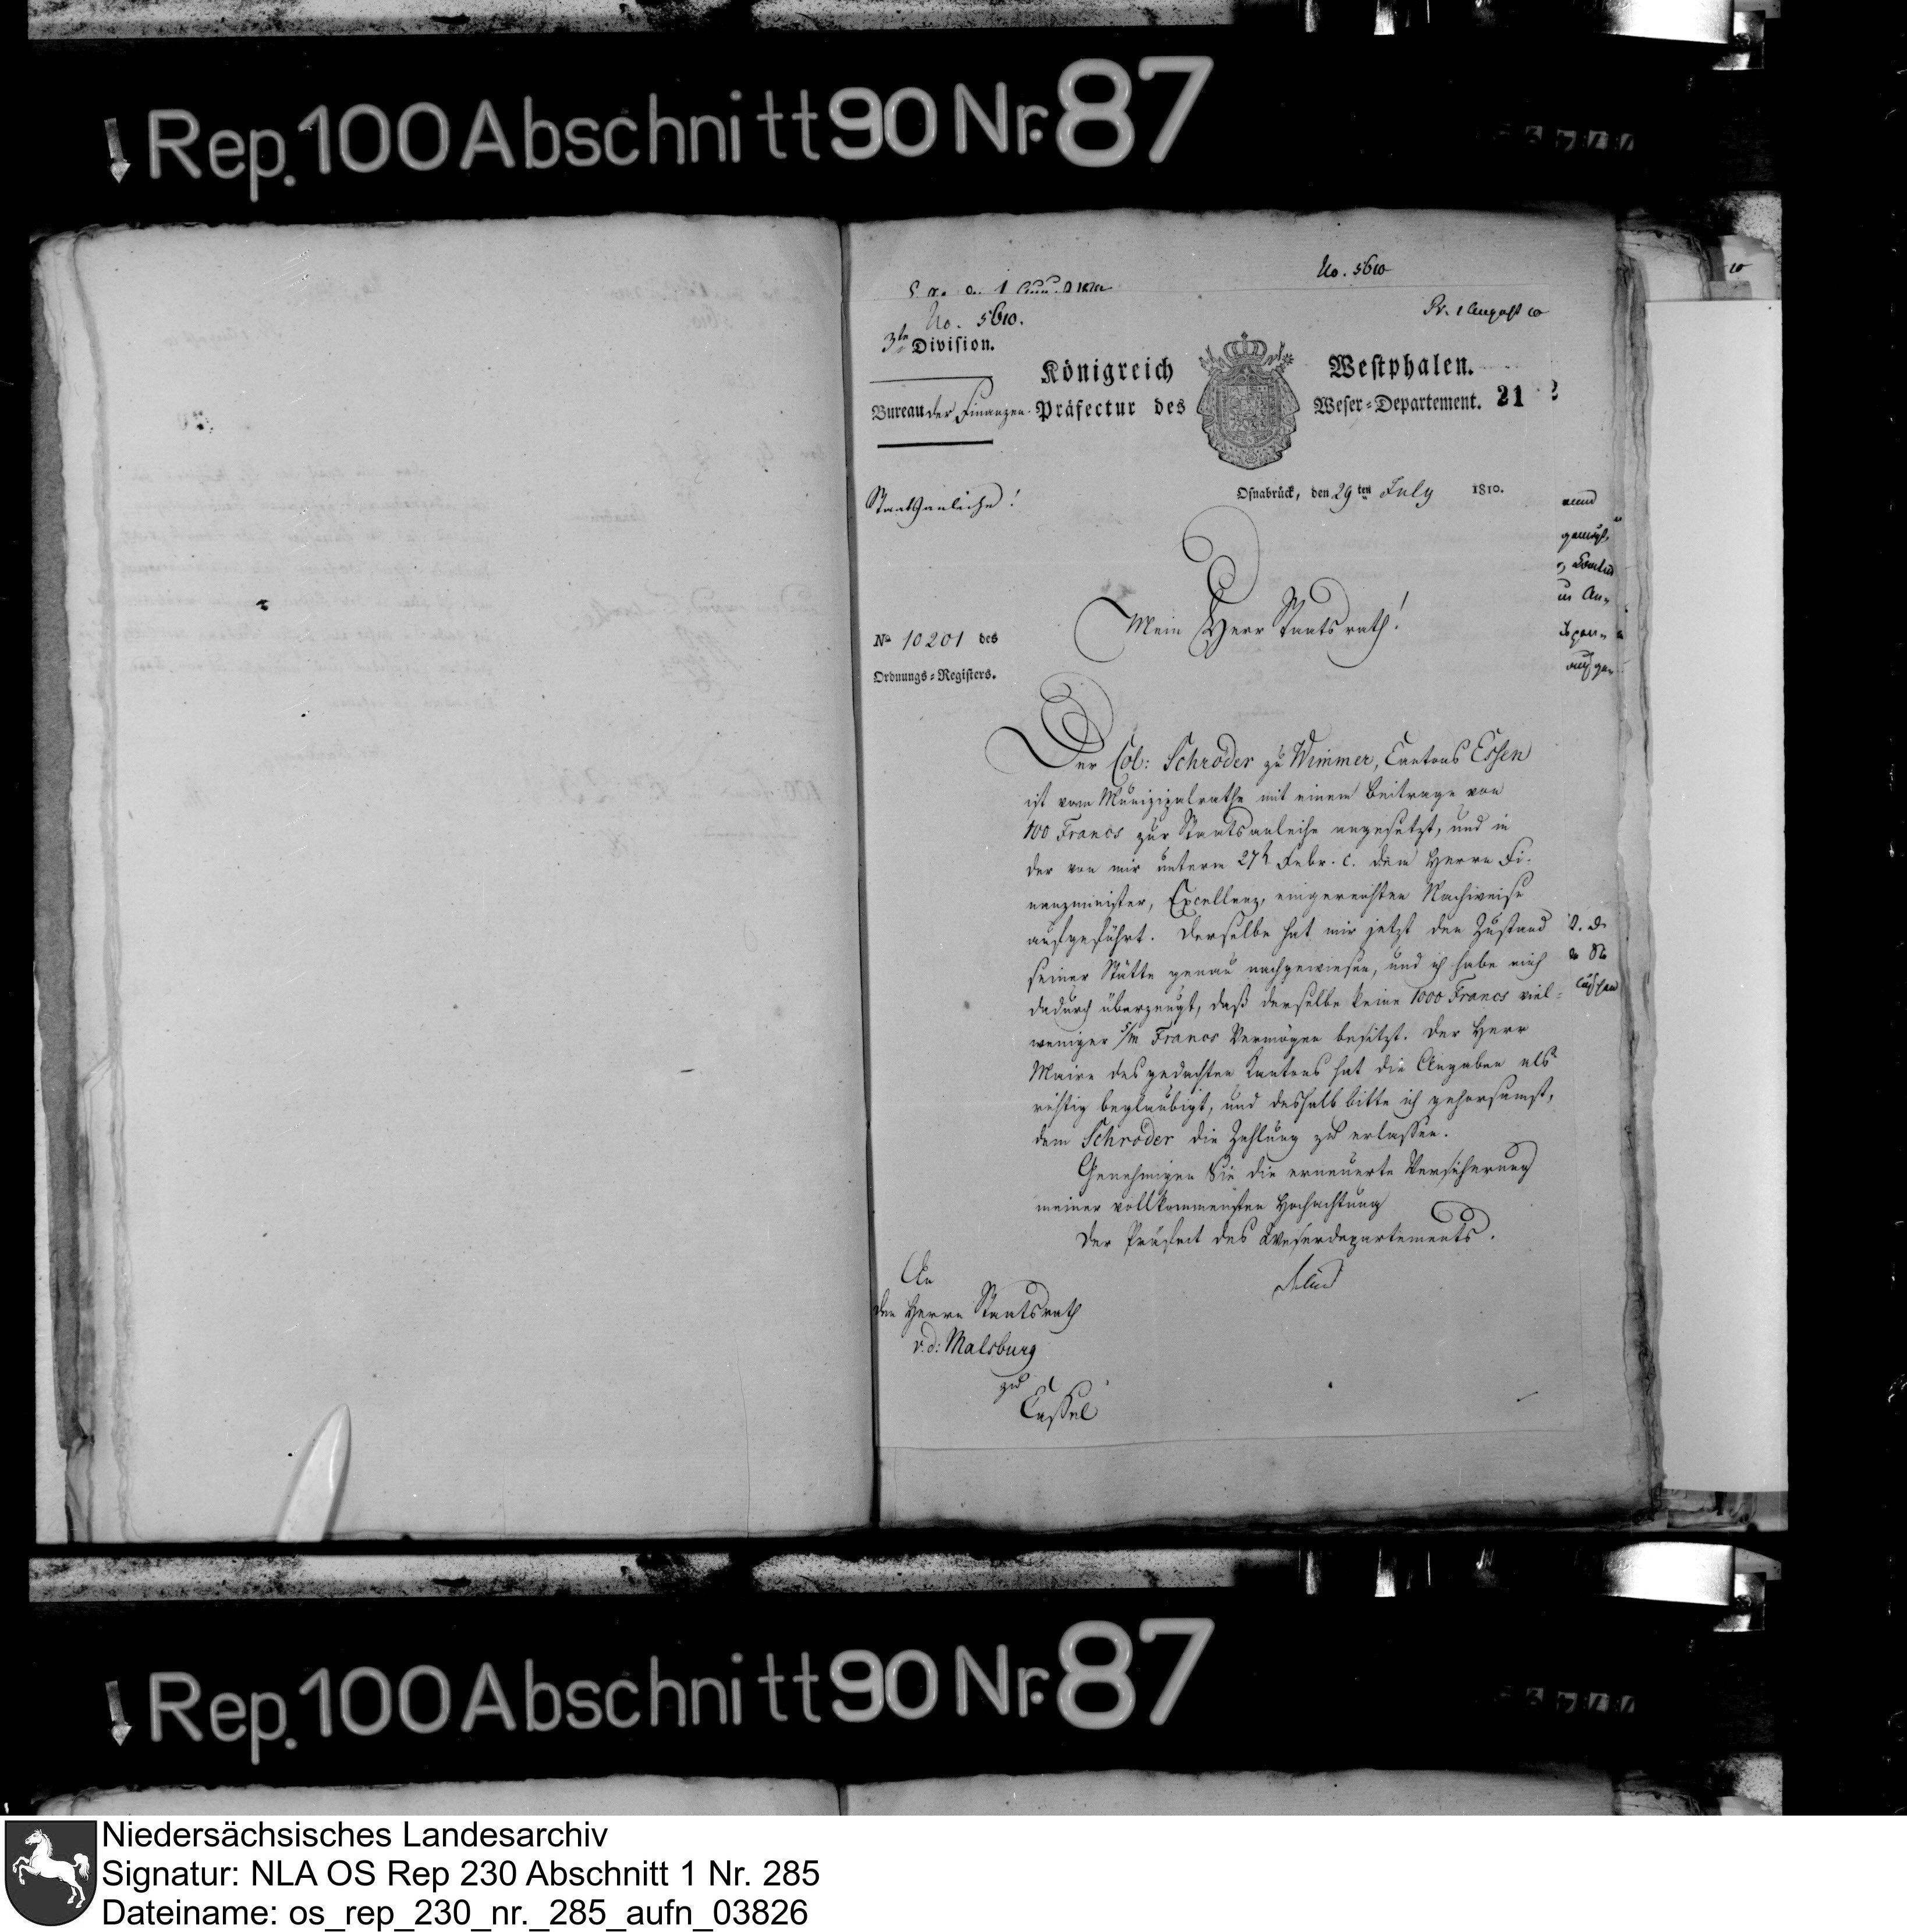 Rep. 100 Abschnitt 90 Nr. 87
No. 5610
Pr. 1 August 10
No. 5610.
3te Diviſion.
Königreich Weſtphalen.
Bureau der Finanzen. Präfectur des Weſer-Departement. 21
Oſnabrück, den 29ten July 1810.
Staatsanleihe!
Mein Herr Staatsrath!
No 10201 des
Ordnungs-Regiſters.
Der Col: Schröder zu Wimmer, Cantons Essen
ist vom Munizipalrathe mit einem Beitrage von
100 Francs zur Staatsanleihe angesetzt, und in
der von mir unterm 27t Febr. c. dem Herrn Fi-
nanzminister, Excellenz, eingereichten Nachweise
aufgeführt. Derselbe hat mir jetzt den Zustand
seiner Stätte genau nachgewiesen, und ich habe mich
dadurch überzeugt, daß derselbe keine 1000 Francs viel-
weniger 5/m Francs Vermögen besitzt. Der Herr
Maire des gedachten Cantons hat die Angaben als
richtig beglaubigt, und deshalb bitte ich gehorsamst,
dem Schröder die Zahlung zu erlassen.
Genehmigen Sie die erneuerte Versicherung
meiner vollkommensten Hochachtung
Der Präfect des Weserdepartements.
An
den Herrn Staatsrath
v. d: Malsburg
zu
Cassel
Rep. 100 Abschnitt 90 Nr. 87
Niedersächsisches Landesarchiv
Signatur: NLA OS Rep 230 Abschnitt 1 Nr. 285
Dateiname: os_rep_230_nr._285_aufn_03826